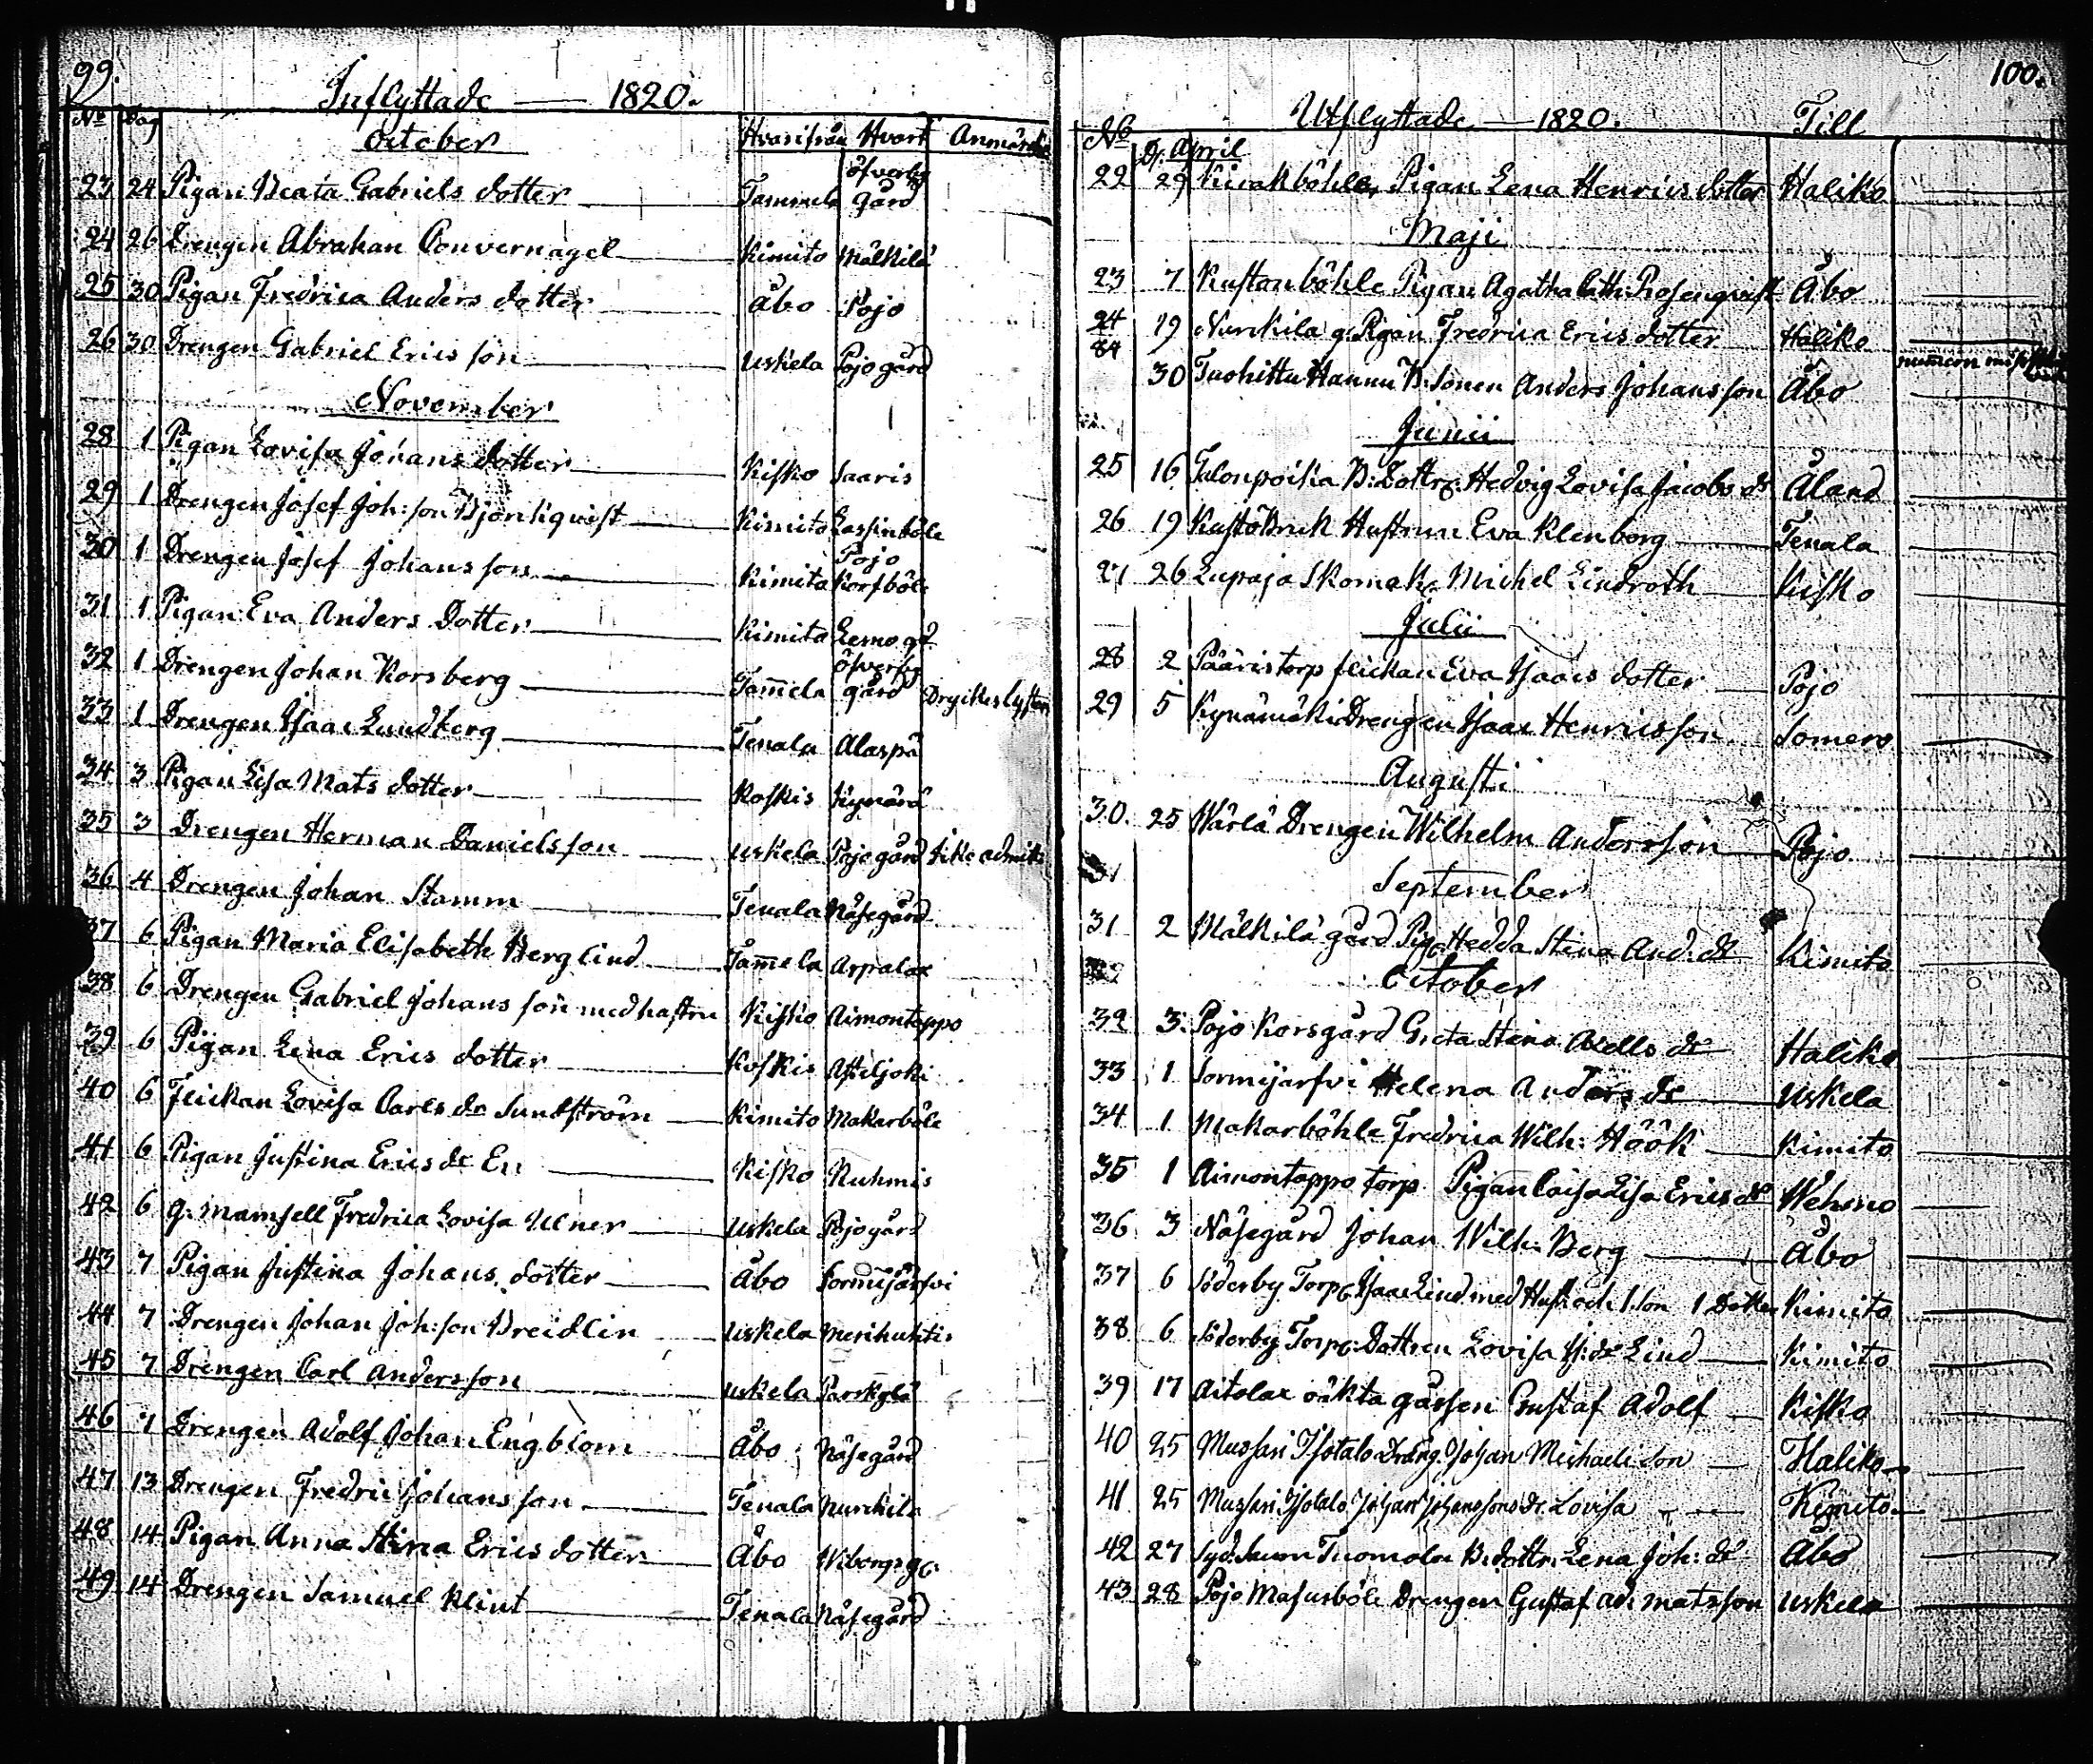 99.
Inflyttade — 1820.
No Dag October Hvarifrån Hvart Anmärkn
23 24 Pigan Beata Gabriels dotter Tammela Öfverby gård
24 26 Drengen Abrahan Couvernagel Kimito Mälkilä
25 30 Pigan Fredrica Anders dotter Åbo Pojo
26 30 Drengen Gabriel Erics son Uskela Pojo gård
November
28 1 Pigan Lovisa Johans dotter Kisko Saaris
29 1 Drengen Josef Joh:son Björkqvist Kimito Lassinböle
30 1 Drengen Josef Johans son Kimito Pojo Korsböle
31 1 Pigan Eva Anders Dotter Kimito Lemo gd
32 1 Drengen Johan Korsberg Tam̄ela Öfverby gård Dryckeslysten
33 1 Drengen Isaac Lundberg Tenala Alaspä
34 3 Pigan Lisa Mats dotter Koskis Kynärä
35 3 Drengen Herman Danielsson Uskela Pojo gård Icke admitt
36 4 Drengen Johan Stamm Tenala Näsegård
37 6 Pigan Maria Elisabeth Berglind Tam̄ela Arpalax
38 6 Drengen Gabriel Johans son med hustru Kisko Aimontoppo
39 6 Pigan Lena Erics dotter Koskis Asteljoki
40 6 Flickan Lovisa Carls dr Sundström Kimito Makarböle
41 6 Pigan Justina Erics dr En Kisko Ruhmis
42 6 g. Mamsell Fredrica Lovisa Ulner Uskela Pojo gård
43 7 Pigan Justina Johans dotter Åbo Sormijärfvi
44 7 Drengen Johan Joh:son Breidlin Uskela Merihuhtis
45 7 Drengen Carl Andersson Uskela Parskylä
46 7 Drengen Adolf Johan Engblom Åbo Näsegård
47 13 Drengen Fredric Johans son Tenala Nurckila
48 14 Pigan Anna Stina Erics dotter Åbo Wiborgs g.
49 14 Drengen Samuel Klint Tenala Näsegård
100.
Utflyttade — 1820. Till
No D. April
22 29 Kirakböhle, Pigan Lena Henrics dotter Haliko
Maji
23 7 Kustonböhle Pigan Agatha Cath: Rosenqvist Åbo
24 19 Nurckila g. Pigan Fredrica Erics dotter Haliko
84 30 Tuohittu Hannu B: Sonen Anders Johansson Åbo
Junii
25 16 Talonpoika B: Dottr: Hedvig Lovisa Jacobs dr Åland
26 19 Kustö Bruk Hustrun Eva Klenborg Tenala
27 26 Lupaja Skomak. Michel Lindroth Kisko
Julii
28 2 Pääristorp flickan Eva Isaacs dotter Pojo
29 5 Kynämäki Drengen Isaac Henricsson Somero
Augusti
30. 25 Wärlä Drengen Wilhelm Andersson Pojo
31
September
31 2 Mälkilä gård Pig. Hedda Stina And: dr Kimito
October
32 3. Pojo Korsgård Greta Stina Axells dr Haliko
33 1 Sormijärfvi Helena Anders dr Uskela
34 1 Makarböhle Fredrica Wilh: Höök Kimito
35 1 Aimontoppo torp Pigan Caisa Lisa Erics dr Wehmo
36 3 Näsegård Johan Wilh: Berg Åbo
37 6 Söderby Torp. Isaac Lind med Hust. och 1 Son 1 Dotter Kimito
38 6 Söderby Torp: Dottren Lovisa Is: dr Lind Kimito
39 17 Aitolax oäkta gåssen Gustaf Adolf Kisko
40 25 Mussari Isotalo Dräng. Johan Michaels Son Haliko
41 25 Mussari Isotalo Johan Johanssons dr. Lovisa Kimito
42 27 Syd: Tuomola B. dottr. Lena Joh: dr Åbo
43 28 Pojo Masusböle Drengen Gustaf Ad: Matsson Uskela